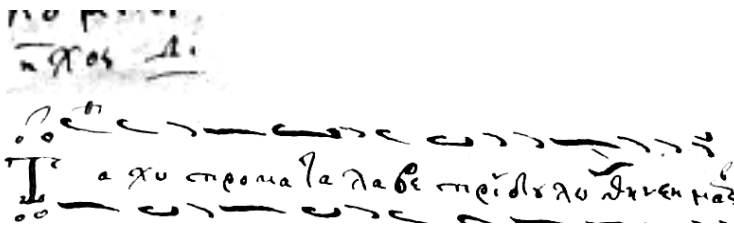 ηχος Δ.
Τα χυ προκα τα λαβε πρὶδουλω θηνεημας